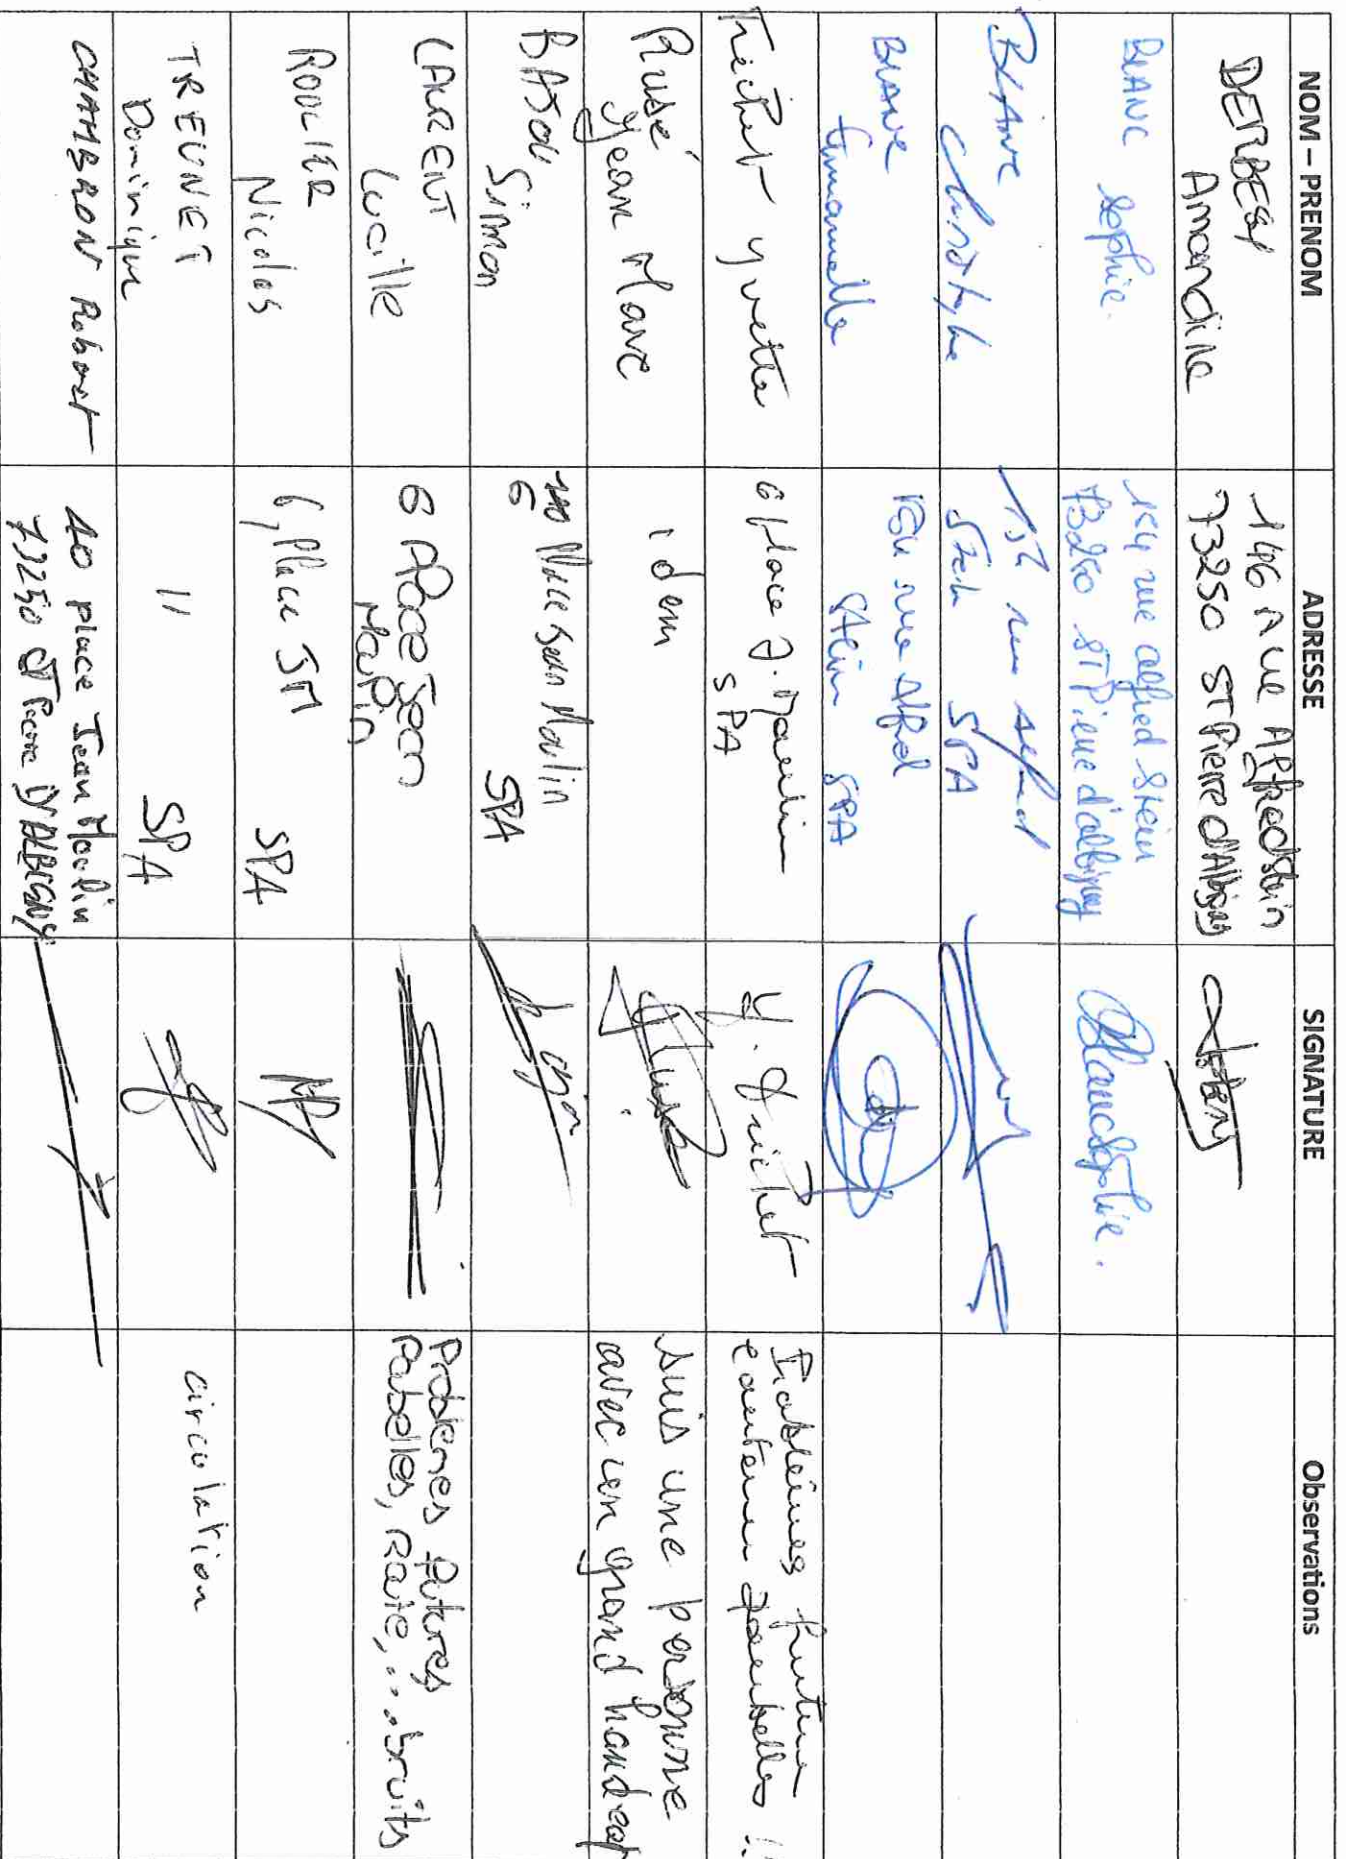 NOM – PRENOM ADRESSE SIGNATURE Observations
DERBEY
Amandine
146 Rue Alfred Stein
73250 ST Pierre d'Albigny
BLANC Sophie.
154 rue alfred Stein
73250 ST Pierre d'albigny
Blanc Sophie.
BLANC Christophe
154 rue Alfred
Stein SPA
BLANC
Emmanuelle
154 rue Alfred
Stein SPA
Trichet yvette
6 place J. Moulin
SPA
Y. Trichet
Problèmes future
poubelles !!
Rusé
Jean Marc
idem
suis une personne
avec un grand handicap
BAJON
Simon
6 Place Jean Moulin
SPA
LAURENT
Lucille
6 Place Jean
Moulin
Problemes futures
Poubelles, Route, ... bruits
ROULIER
Nicolas
6, Place JM
SPA
TREUNET
Dominique
11
SPA
circulation
CHAMBRON Robert
10 place Jean Moulin
73250 ST Pierre D'ALBIGNY